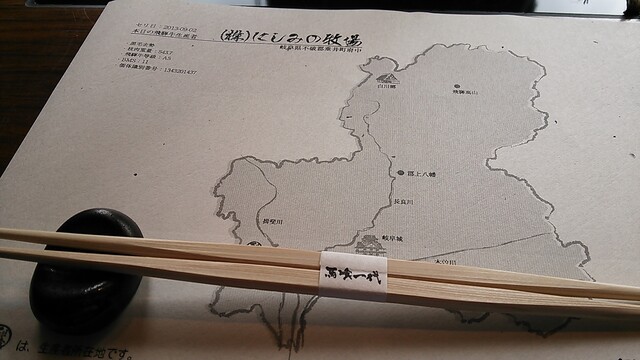 セリ日：2013-09-02
本日の飛騨牛生産者
(株)にしみの牧場
岐阜県不破郡垂井町府中
飛騨牛等級：A5
BMS：11
個体識別番号：1343201437
白川郷
飛騨高山
郡上八幡
長良川
揖斐川
岐阜城
木曽川
馬喰一代
は、生産者所在地です。